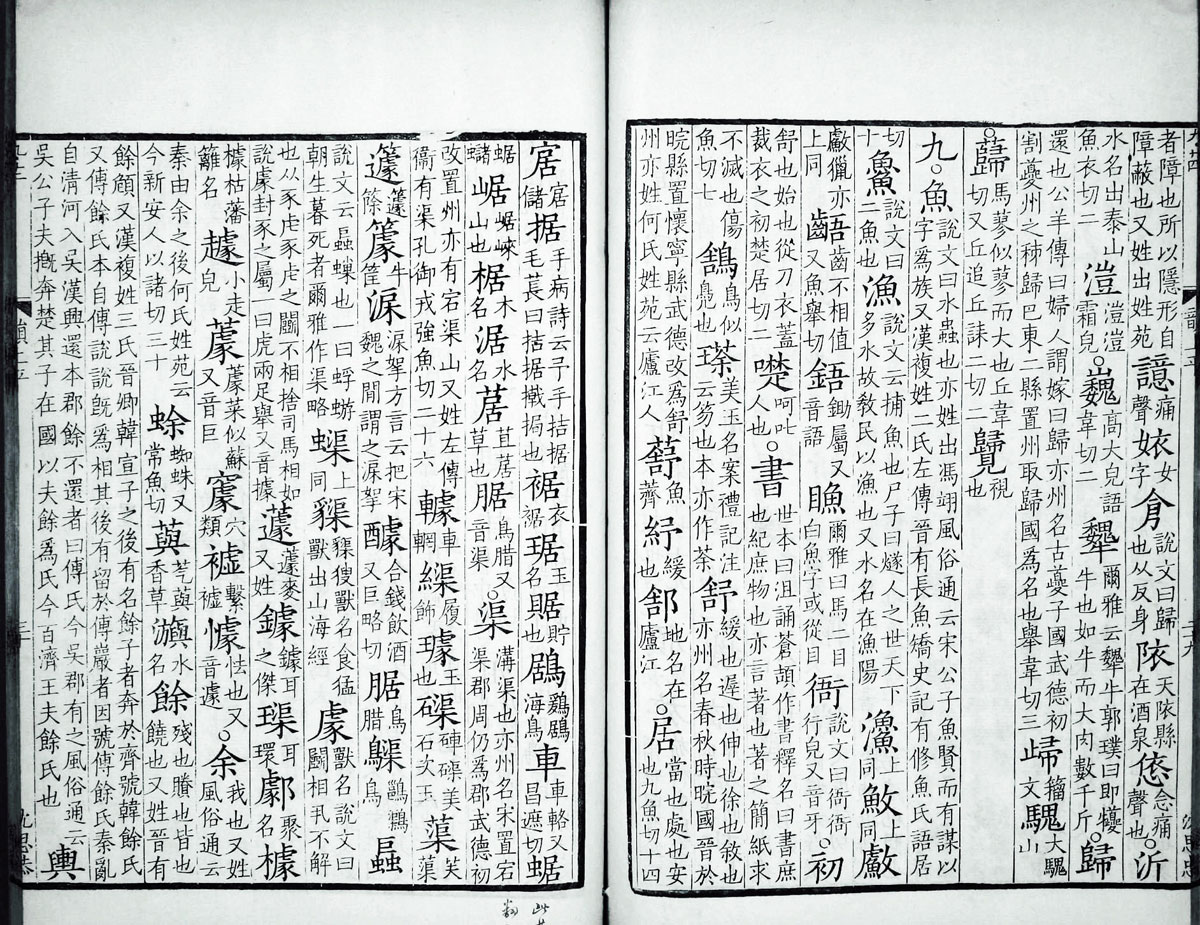 者障也所以隱形自障蔽也又姓出姓苑 譩痛聲 㛄女字 㐆說文曰歸也从反身 天縣在酒泉 㥋念痛聲也 ○沂
水名出泰山魚衣切二 溰溰溰霜皃 ○巍高大皃語韋切二 犩爾雅云犩牛郭璞曰即犪牛也如牛而大肉數千斤 ○歸
還也公羊傳曰婦人謂嫁曰歸亦州名古夔子國武德初割夔州之秭歸巴東二縣置州取歸國爲名也舉韋切三 㱕籒文 騩大騩山
○蘬馬蓼似蓼而大也丘韋切又丘追丘誄二切二 視也
九○魚說文曰水蟲也亦姓出馮翊風俗通云宋公子魚賢而有謀以字爲族又漢複姓二氏左傳晉有長魚矯史記有修魚氏語居
切十 䲆二魚也 漁說文云捕魚也尸子曰燧人之世天下多水故敎民以漁也又水名在漁陽 𤀯上同 䰻上同 䱷
獵亦上同 齬齒不相值又魚舉切 鋙鋤屬又音語 䁩爾雅曰馬二目白魚字或從目 衙說文曰衙衙行皃又音牙 ○初
舒也始也從刀衣蓋裁衣之初楚居切二 㗵呵叱人也 ○書世本曰沮誦蒼頡作書釋名曰書庶也紀庶物也亦言著也著之簡紙求
不滅也傷魚切七 鵨鳥似鳧也 瑹美玉名案禮記注云笏也本亦作荼 舒緩也遲也伸也徐也敘也亦州名春秋時晥國晉於
晥縣置懷寧縣武德改爲舒州亦姓何氏姓苑云廬江人 蕏魚薺 紓緩也 郐地名在廬江 ○居當也處也安也九魚切十四
㝒㝒儲 据手病詩云予手拮据毛萇曰拮据撠挶也 裾衣裾 琚玉名 䝻貯也 鶋鷄鶋海鳥 車車輅又昌遮切 蜛
蜛蝫 崌崌崍山也 椐木名 涺水名 蒩苴蒩草也 腒鳥腊又音渠 ○渠溝渠也亦州名宋置宕渠郡周仍爲郡武德初
改置州亦有宕渠山又姓左傳衞有渠孔御戎強魚切二十六 𨏮車輞 䋧履飾 璩玉也 磲硨磲美石次玉 蕖芙蕖
籧籧篨 𥴧牛筐 淭淭挐方言云把宋魏之閒謂之淭挐 醵合錢飲酒又巨略切 腒鳥腊 䲒鸍䲒鳥 䗳
說文云䗳螶也一曰蜉蝣朝生暮死者爾雅作渠略 螶上同 獸名食猛獸出山海經 豦獸名說文曰豦鬬相丮不解
也从豕虍豕虍之鬬不相捨司馬相如說豦封豕之屬一曰虎兩足舉又音據 蘧蘧麥又姓 鐻鐻耳之傑 璖耳環 䣰聚名 㯫
㯫枯藩籬名 䠣小走皃 䕮䕮菜似蘇又音巨 穴類 䙔繫䙔 懅怯也又音遽 ○余我也又姓風俗通云
秦由余之後何氏姓苑云今新安人以諸切三十 蜍蜘蛛又常魚切 䕋芞䕋香草 㶛水名 餘殘也賸也皆也饒也又姓晉有
餘頠又漢複姓三氏晉卿韓宣子之後有名餘子者奔於齊號韓餘氏又傅餘氏本自傅說說旣爲相其後有留於傅巖者因號傅餘氏秦亂
自清河入吳漢興還本郡餘不還者曰傅氏今吳郡有之風俗通云吳公子夫摡奔楚其子在國以夫餘爲氏今百濟王夫餘氏也 輿